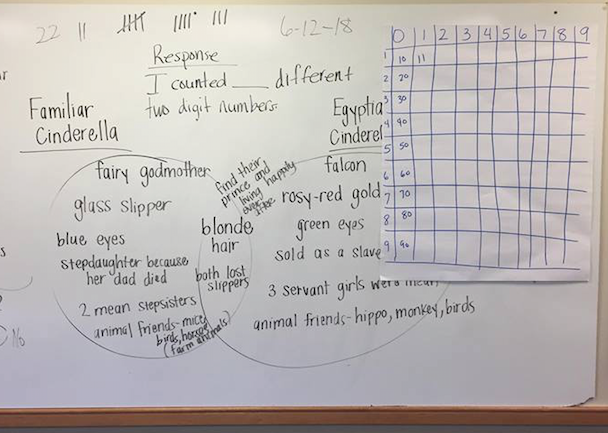 22
6-12-18
Response
I counted ___ different
two digit numbers.
Familiar
Cinderella
fairy godmother
glass slipper
blue eyes
stepdaughter because
her dad died
2 mean stepsisters
animal friends-mice,
birds, horse
(farm animals)
find their
prince and
living happily
ever
after
blonde
hair
both lost
slippers
Egyptia
Cinderel
falcon
rosy-red gold
green eyes
sold as a slave
3 servant girls were mean
animal friends-hippo, monkey, birds
No
0 1 2 3 4 5 6 7 8 9
1 10 11
2 20
3 30
4 40
5 50
6 60
7 70
8 80
9 90